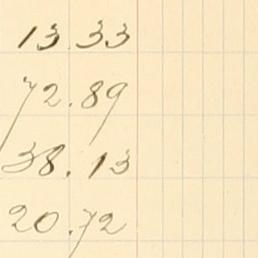 13.33
72.89
38.13
20.72